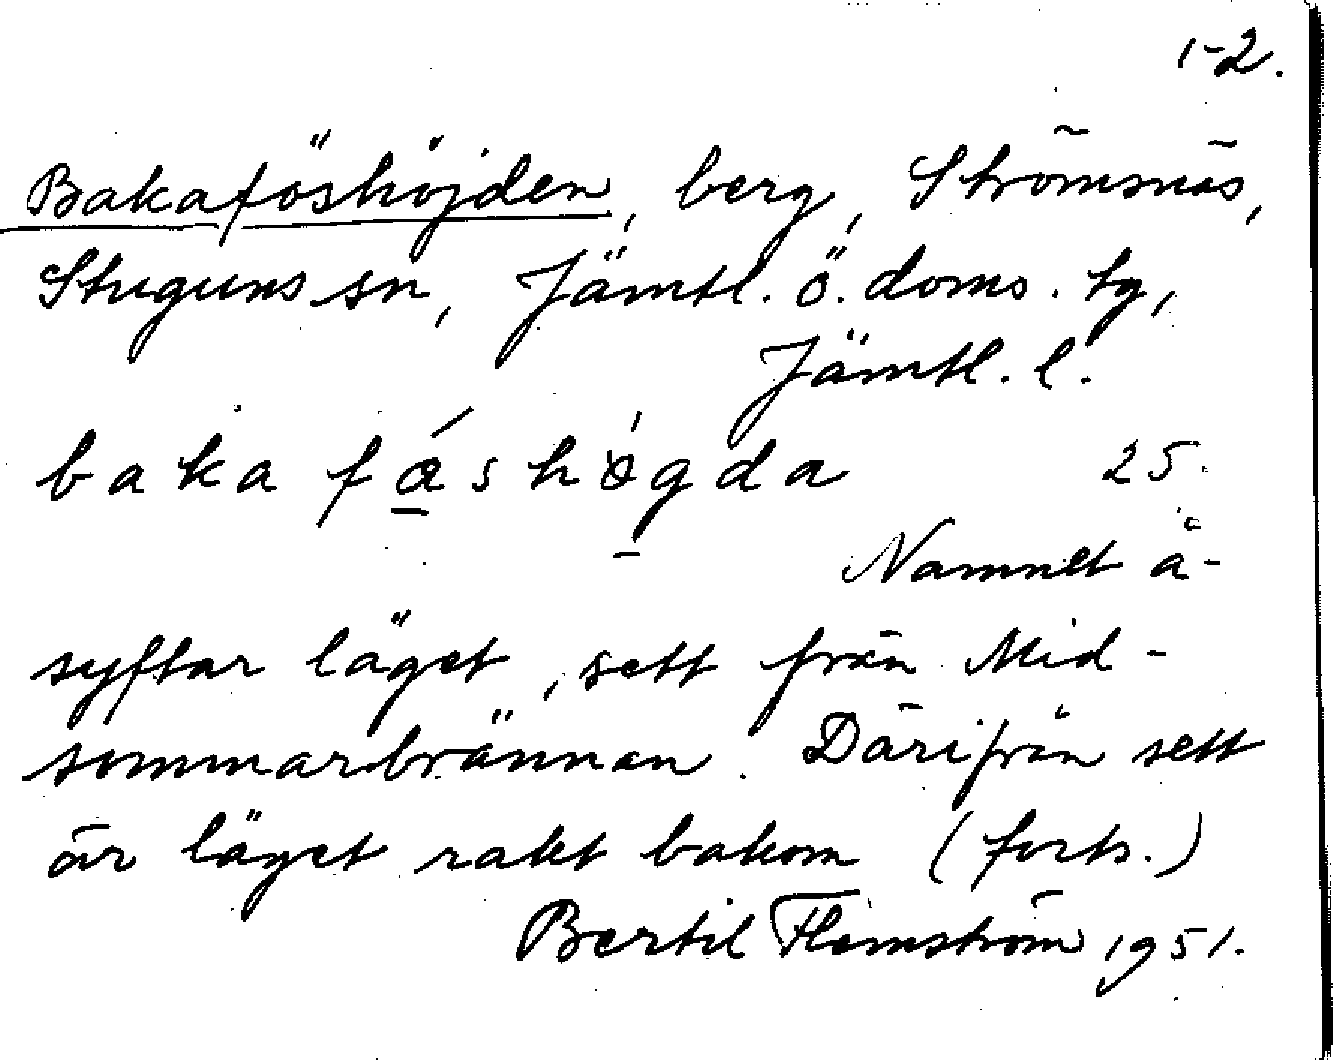 1-2.
Bakaföshöjden, berg, Strömsnäs,
Stuguns sn, Jämtl. ö. doms. tg,
Jämtl. l.
baka fǽshø̀gda 25.
Namnet å-
syftar läget, sett från Mid-
sommarbrännan. Därifrån sett
är läget rakt bakom (forts.)
Bertil Flemström 1951.